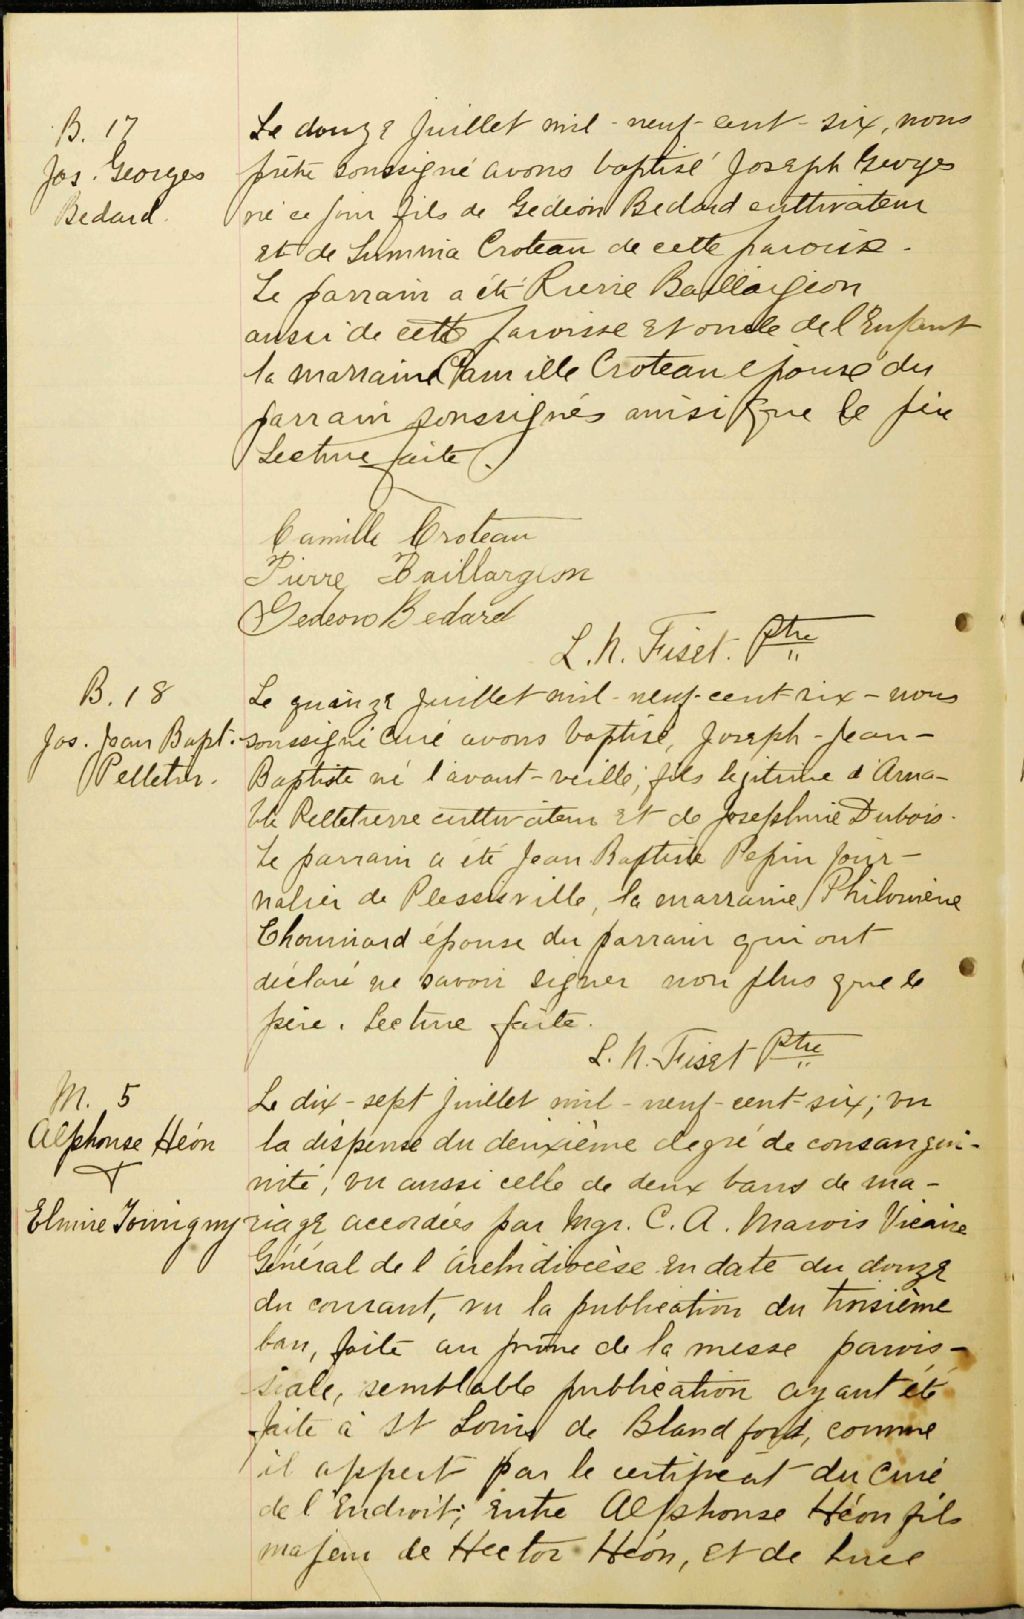 B. 17
Jos. Georges
Bedard.
Le douze juillet mil-neuf-cent-six, nous
prêtre soussigné avons baptisé Joseph Georges
né ce jour fils de Gédéon Bedard cultivateur
et de Croteau de cette paroisse.
Le parrain a été Pierre Baillargeon
aussi de cette paroisse et oncle de l'Enfant
la marraine Camille Croteau épouse du
parrain soussignés ainsi que le père
Lecture faite.
Camille Croteau
Pierre Baillargeon
Gedeon Bedard
L. N. Fiset. Ptre
B. 18
Jos. Jean Bapt.
Pelletier.
Le quinze juillet mil-neuf-cent six - nous
soussigné Curé avons baptisé, Joseph-Jean-
Baptiste né l'avant-veille, fils légitime d'Ama-
ble Pelletierre cultivateur et de Josephine Dubois.
Le parrain a été Jean Baptiste Pepin jour-
nalier de Plessisville, la marraine Philomène
Chouinard épouse du parrain qui ont
déclaré ne savoir signer non plus que le
père. Lecture faite.
L. N. Fiset Ptre
M. 5
Alphonse Héon
&
Elmire Tourigny
Le dix-sept juillet mil-neuf-cent-six; vu
la dispense du deuxième degré de consangui-
nité; vu aussi celle de deux bans de ma-
riage accordées par Mgr. C. A. Marois Vicaire
Général de l'archidiocèse en date du douze
du courant, vu la publication du troisième
ban, faite au prône de la messe parois-
siale, semblable publication ayant été
faite à St Louis de Blandford, comme
il appert par le certificat du Curé
de l'Endroit; Entre Alphonse Héon fils
majeur de Hector Héon, et de Luce